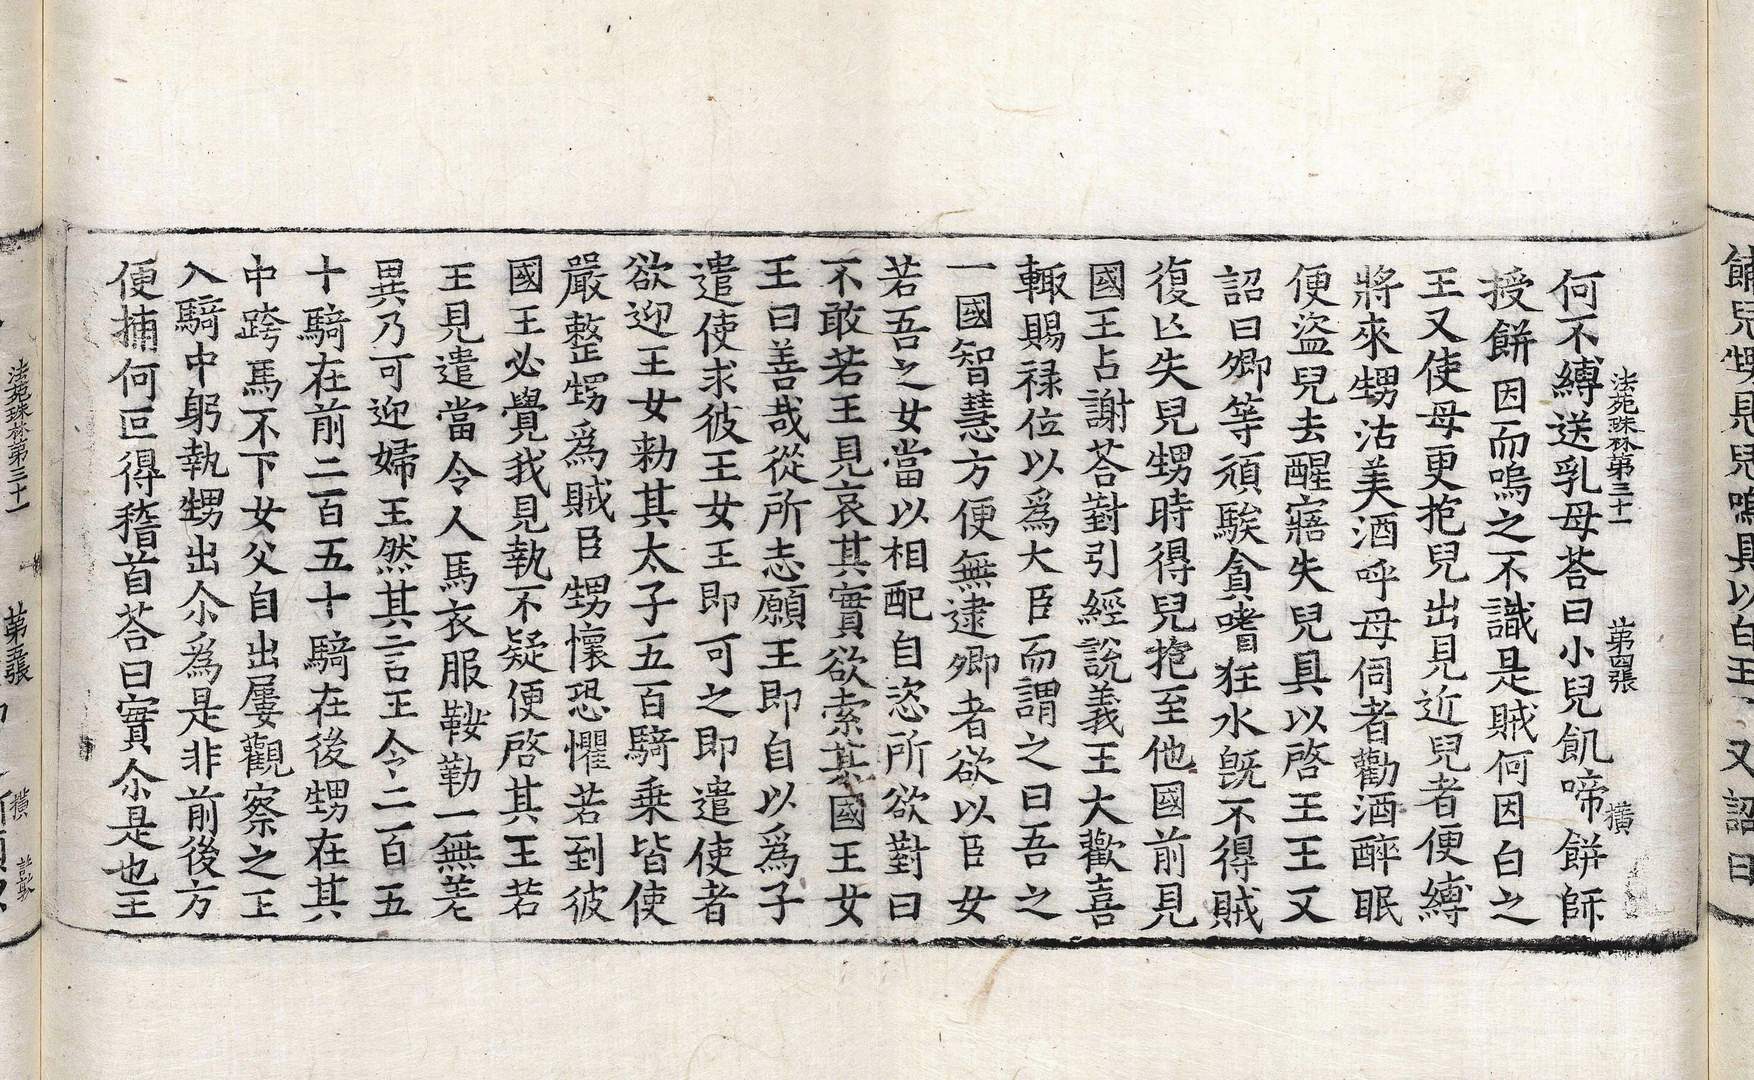 餔兒甥見兒嗚具以白王王又詔曰
法苑珠林第三十一 第四張 橫
何不縛送乳母荅曰小兒飢啼餅師
授餅因而嗚之不識是賊何因白之
王又使母更抱兒出見近兒者便縛
將來甥沽美酒呼母伺者勸酒醉眠
便盜兒去醒寤失兒具以啓王王又
詔曰卿等頑騃貪嗜狂水旣不得賊
復亡失兒甥時得兒抱至他國前見
國王占謝荅對引經說義王大歡喜
輙賜祿位以爲大臣而謂之曰吾之
一國智慧方便無逮卿者欲以臣女
若吾之女當以相配自恣所欲對曰
不敢若王見哀其實欲索某國王女
王曰善哉從所志願王即自以爲子
遣使求彼王女王即可之即遣使者
欲迎王女勑其太子五百騎乘皆使
嚴整甥爲賊臣甥懷恐懼若到彼
國王必覺我見執不疑便啓其王若
王見遣當令人馬衣服鞍勒一無差
異乃可迎婦王然其言王令二百五
十騎在前二百五十騎在後甥在其
中跨馬不下女父自出屢觀察之王
入騎中躬執甥出尒爲是非前後方
便捕何叵得稽首荅曰實尒是也王
法苑珠林第三十一 第五張 橫